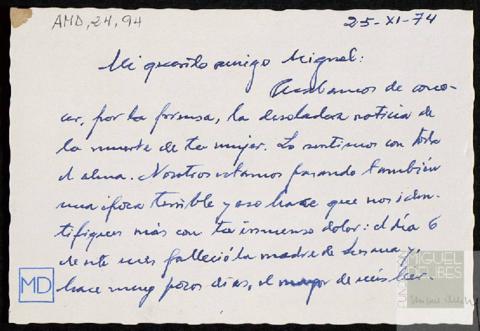 AMD, 24, 94
25-XI-74
Mi querido amigo Miguel:
Acabamos de cono-
cer, por la prensa, la desoladora noticia de
la muerte de tu mujer. Lo sentimos con toda
el alma. Nosotros estamos pasando también
una época terrible y eso hace que nos iden-
tifiquemos más con tu inmenso dolor: el día 6
de este mes falleció la madre de Susana y,
hace muy pocos días, el mayor de mis her-
MD
MIGUEL
DELIBES